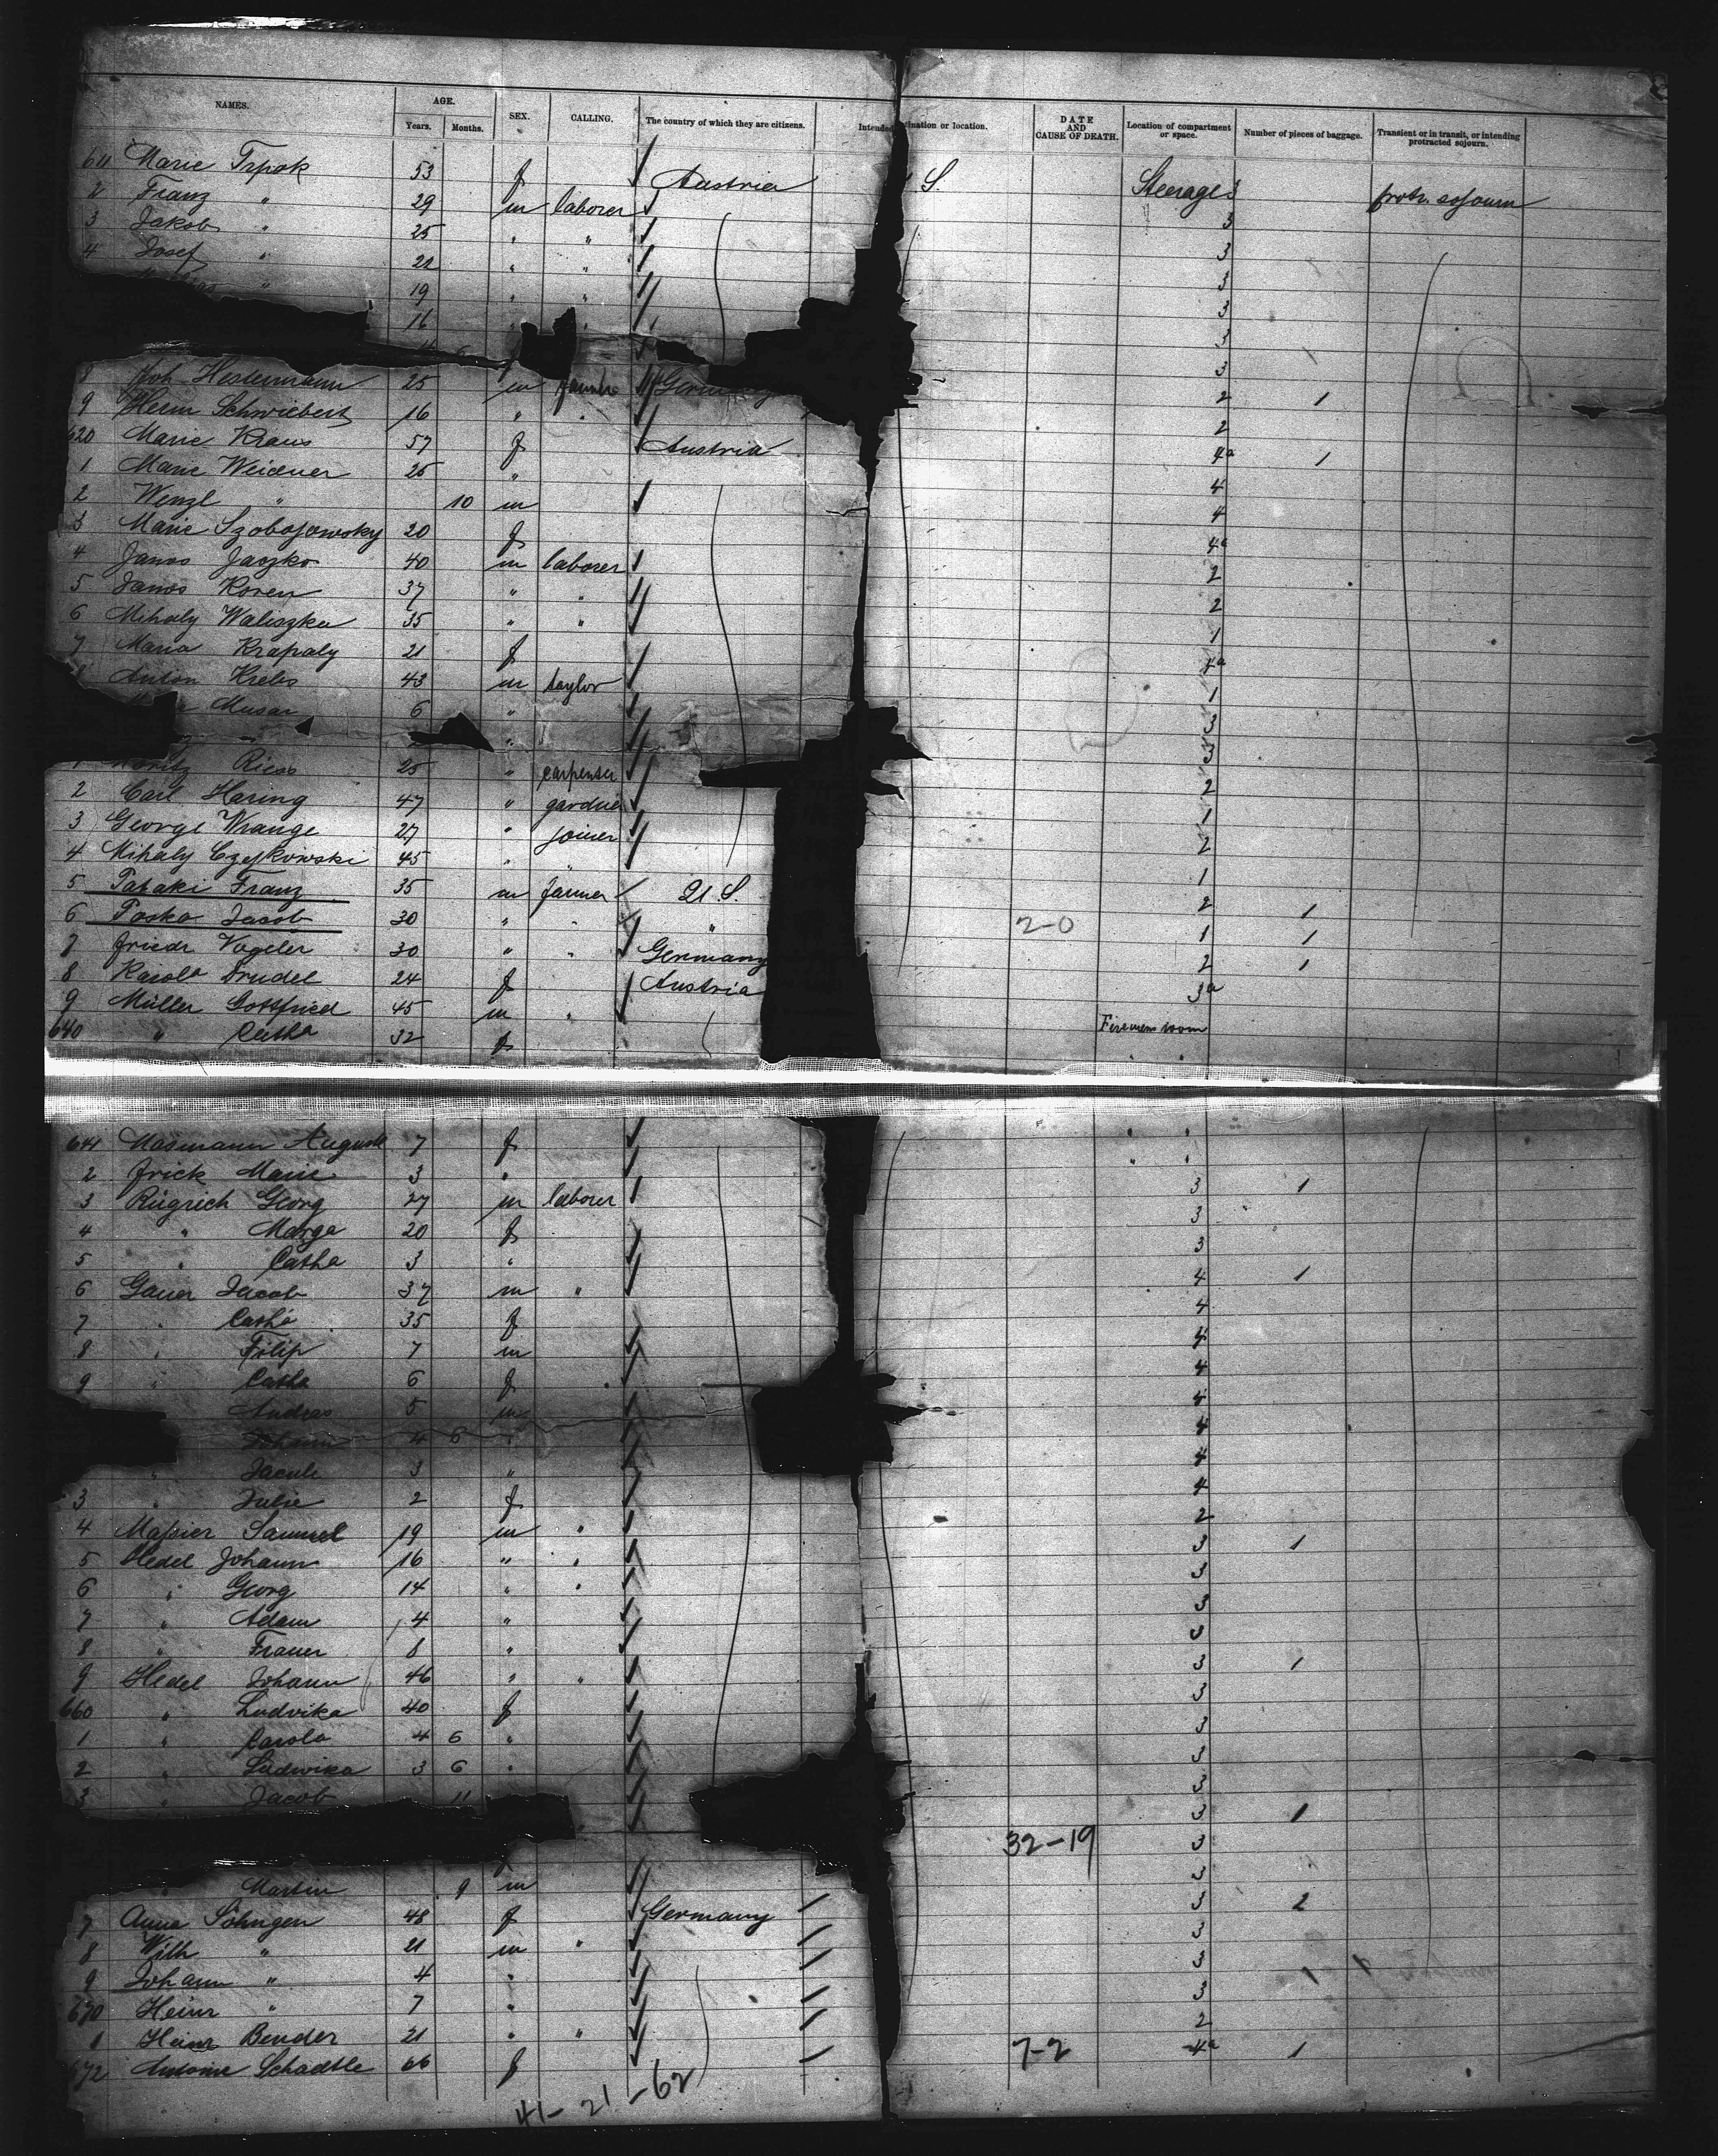 NAMES. AGE. SEX. CALLING. The country of which they are citizens. Intended destination or location. DATE AND CAUSE OF DEATH. Location of compartment or space. Number of pieces of baggage. Transient or in transit, or intending protracted sojourn.
Years. Months.
611 Marie Trpak 53 f Austria S. Steerage 3 protr. sojourn
2 Franz " 29 m laborer 3
3 Jakob " 25 " " 3
4 Josef " 21 " " 3
" 19 " " 3
16 " " 3
6 3
8 Joh Hestermann 25 m farmer Germany 2 1
9 Herm Schwiebert 16 " " 2
620 Marie Kraus 57 f Austria 4a 1
1 Marie Weidner 25 " 4
2 Wenzl " 10 m 4
3 Marie Szobojowsky 20 f 4a
4 Janos Jaszko 40 m laborer 2
5 Janos Koren 37 " " 2
6 Mihaly Waliszka 35 " " 1
7 Maria Krapaly 21 f 4a
Anton Krebs 43 m taylor 1
Musar 6 " 3
" 3
1 Moritz Riess 25 " carpenter 2
2 Carl Haring 47 " gardner 1
3 George Wrange 27 " joiner 2
4 Mihaly Czejkowski 45 " " 1
5 Tabaki Franz 35 m farmer U. S. 2 1
6 Paska Jacob 30 " " " 2-0 1 1
7 Friedr Vogeler 30 " " Germany 2 1
8 Karola Drudel 24 f Austria 3a
9 Müller Gottfried 45 m " Firemens room
640 " Catha 32 f " "
641 Masmann August 7 f " "
2 Frick Marie 3 " " "
3 Rügrich Georg 27 m laborer 3 1
4 " Marga 20 f 3
5 " Catha 3 " 3
6 Gauer Jacob 37 m " 4 1
7 " Catha 35 f 4
8 " Filip 7 m 4
9 " Catha 6 f 4
Andreas 5 m 4
Johann 4 6 " 4
" Jacob 3 " 4
3 " Julie 2 f 4
4 Massier Samuel 19 m " 2
5 Hedel Johann 16 " " 3 1
6 " Georg 14 " " 3
7 " Adam 4 " 3
8 " Franer 8 " 3
9 Hedel Johann 46 " " 3 1
660 " Ludvika 40 f 3
1 " Carola 4 6 " 3
2 " Ludwika 3 6 " 3
3 " Jacob 11 3
3 1
32-19 3
" Martin 9 m 3
7 Anna Söhngen 48 f Germany 3 2
8 Wilh " 21 m " 3
9 Johann " 4 " 3
670 Heinr " 7 " 3
1 Heinr Bender 21 " " 2
672 Antonie Schadtle 66 f 7-2 4a 1
41-21-62